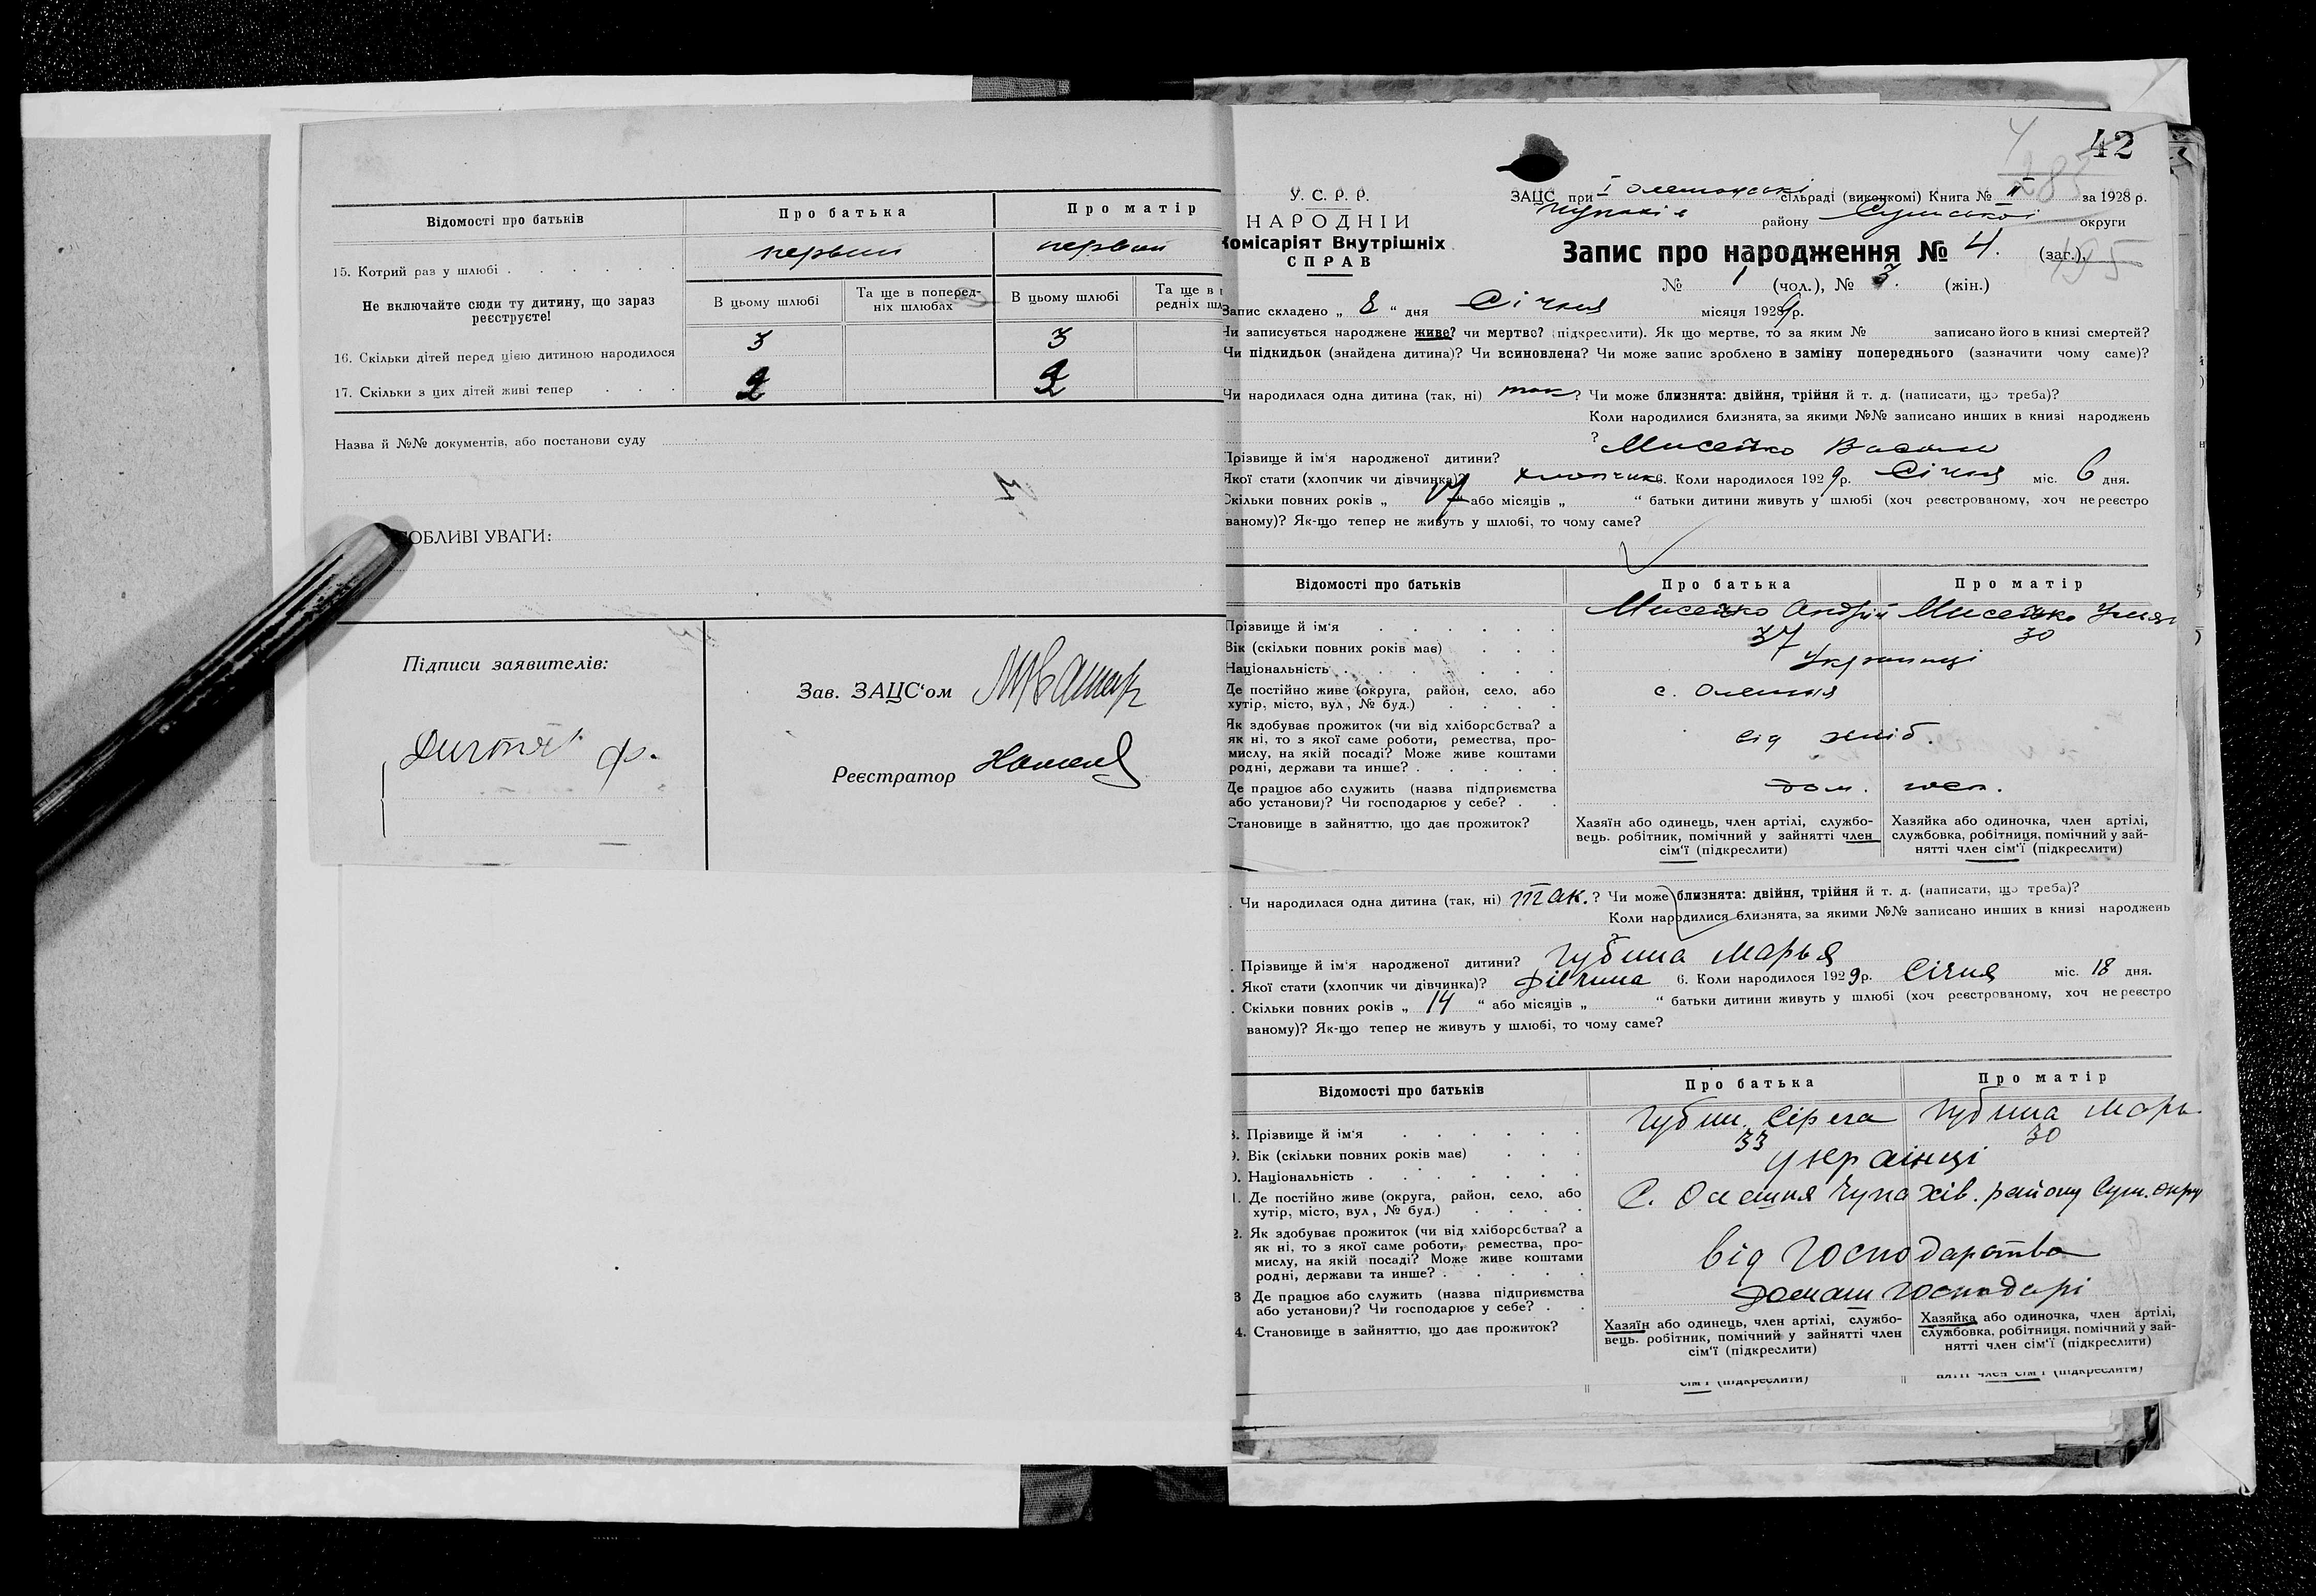 Відомості про батьків
Про батька
Про матір
15. Котрий раз у шлюбі
первий
первий
Не включайте сюди ту дитину, що зараз реєструєте!
В цьому шлюбі
Та ще в поперед-
ніх шлюбах
В цьому шлюбі
Та ще в
редніх шл
16. Скільки дітей перед цією дитиною народилося
3
3
17. Скільки з цих дітей живі тепер
2
2
Назва й №№ документів, або постанови суду
ОБЛИВІ УВАГИ:
Підписи заявителів:
Зав. ЗАЦС'ом
Реєстратор
42
У. С. Р. Р.
НАРОДНІЙ
Комісаріят Внутрішніх
СПРАВ
ЗАЦС при І сільраді (виконкомі) Книга № ІІ за 1928 р.
району Сумської округи
Запис про народження № 4. (заг.),
№ 1 (чол.), № 3. (жін.)
Запис складено „ 8 “ дня Січня місяця 1929 р.
Чи записується народжене живе? чи мертве? (підкреслити). Як що мертве, то за яким № записано його в книзі смертей?
Чи підкидьок (знайдена дитина)? Чи всиновлена? Чи може запис зроблено в заміну попереднього (зазначити чому саме)?
Чи народилася одна дитина (так, ні) так ? Чи може близнята: двійня, трійня й т. д. (написати, що треба)?
Коли народилися близнята, за якими №№ записано инших в книзі народжень
?
Прізвище й ім'я народженої дитини? Мисейко
Якої стати (хлопчик чи дівчинка)? хлопчик 6. Коли народилося 1929 р. Січня міс. 6 дня.
Скільки повних років „ 17 “ або місяців „ “ батьки дитини живуть у шлюбі (хоч реєстрованому, хоч не реєстро
ваному)? Як-що тепер не живуть у шлюбі, то чому саме?
Відомості про батьків
Про батька
Про матір
Прізвище й ім'я
Мисейко Андрій
Мисейко
Вік (скільки повних років має)
37
30
Національність
Українці
Де постійно живе (округа, район, село, або
хутір, місто, вул, № буд.)
с. Олешня
Як здобуває прожиток (чи від хліборобства? а
як ні, то з якої саме роботи, ремества, про-
мислу, на якій посаді? Може живе коштами
родні, держави та инше?
від хліб.
Де працює або служить (назва підприємства
або установи)? Чи господарює у себе?
дом. госп.
Становище в зайняттю, що дає прожиток?
Хазяїн або одинець, член артілі, службо-
вець. робітник, помічний у зайнятті член
сім'ї (підкреслити)
Хазяйка або одиночка, член артілі,
службовка, робітниця, помічний у зай-
нятті член сім'ї (підкреслити)
Чи народилася одна дитина (так, ні) так. ? Чи може близнята: двійня, трійня й т. д. (написати, що треба)?
Коли народилися близнята, за якими №№ записано инших в книзі народжень
?
Прізвище й ім'я народженої дитини? Губина Марья
Якої стати (хлопчик чи дівчинка)? Дівчина 6. Коли народилося 1929 р. Січня міс. 18 дня.
Скільки повних років „ 14 “ або місяців „ “ батьки дитини живуть у шлюбі (хоч реєстрованому, хоч не реєстро
ваному)? Як-що тепер не живуть у шлюбі, то чому саме?
Відомості про батьків
Про батька
Про матір
8. Прізвище й ім'я
Губин. Сірега
Губина Марь
9. Вік (скільки повних років має)
33
30
0. Національність
українці
1. Де постійно живе (округа, район, село, або
хутір, місто, вул, № буд.)
С. Олешня Чупахів. району Сум. окру
2. Як здобуває прожиток (чи від хліборобства? а
як ні, то з якої саме роботи, ремества, про-
мислу, на якій посаді? Може живе коштами
родні, держави та инше?
від господарства
3 Де працює або служить (назва підприємства
або установи)? Чи господарює у себе?
Домаш господарі
4. Становище в зайняттю, що дає прожиток?
Хазяїн або одинець, член артілі, службо-
вець. робітник, помічний у зайнятті член
сім'ї (підкреслити)
Хазяйка або одиночка, член артілі,
службовка, робітниця, помічний у зай-
нятті член сім'ї (підкреслити)
сім'ї (підкреслити)
нятті член сім'ї (підкреслити)